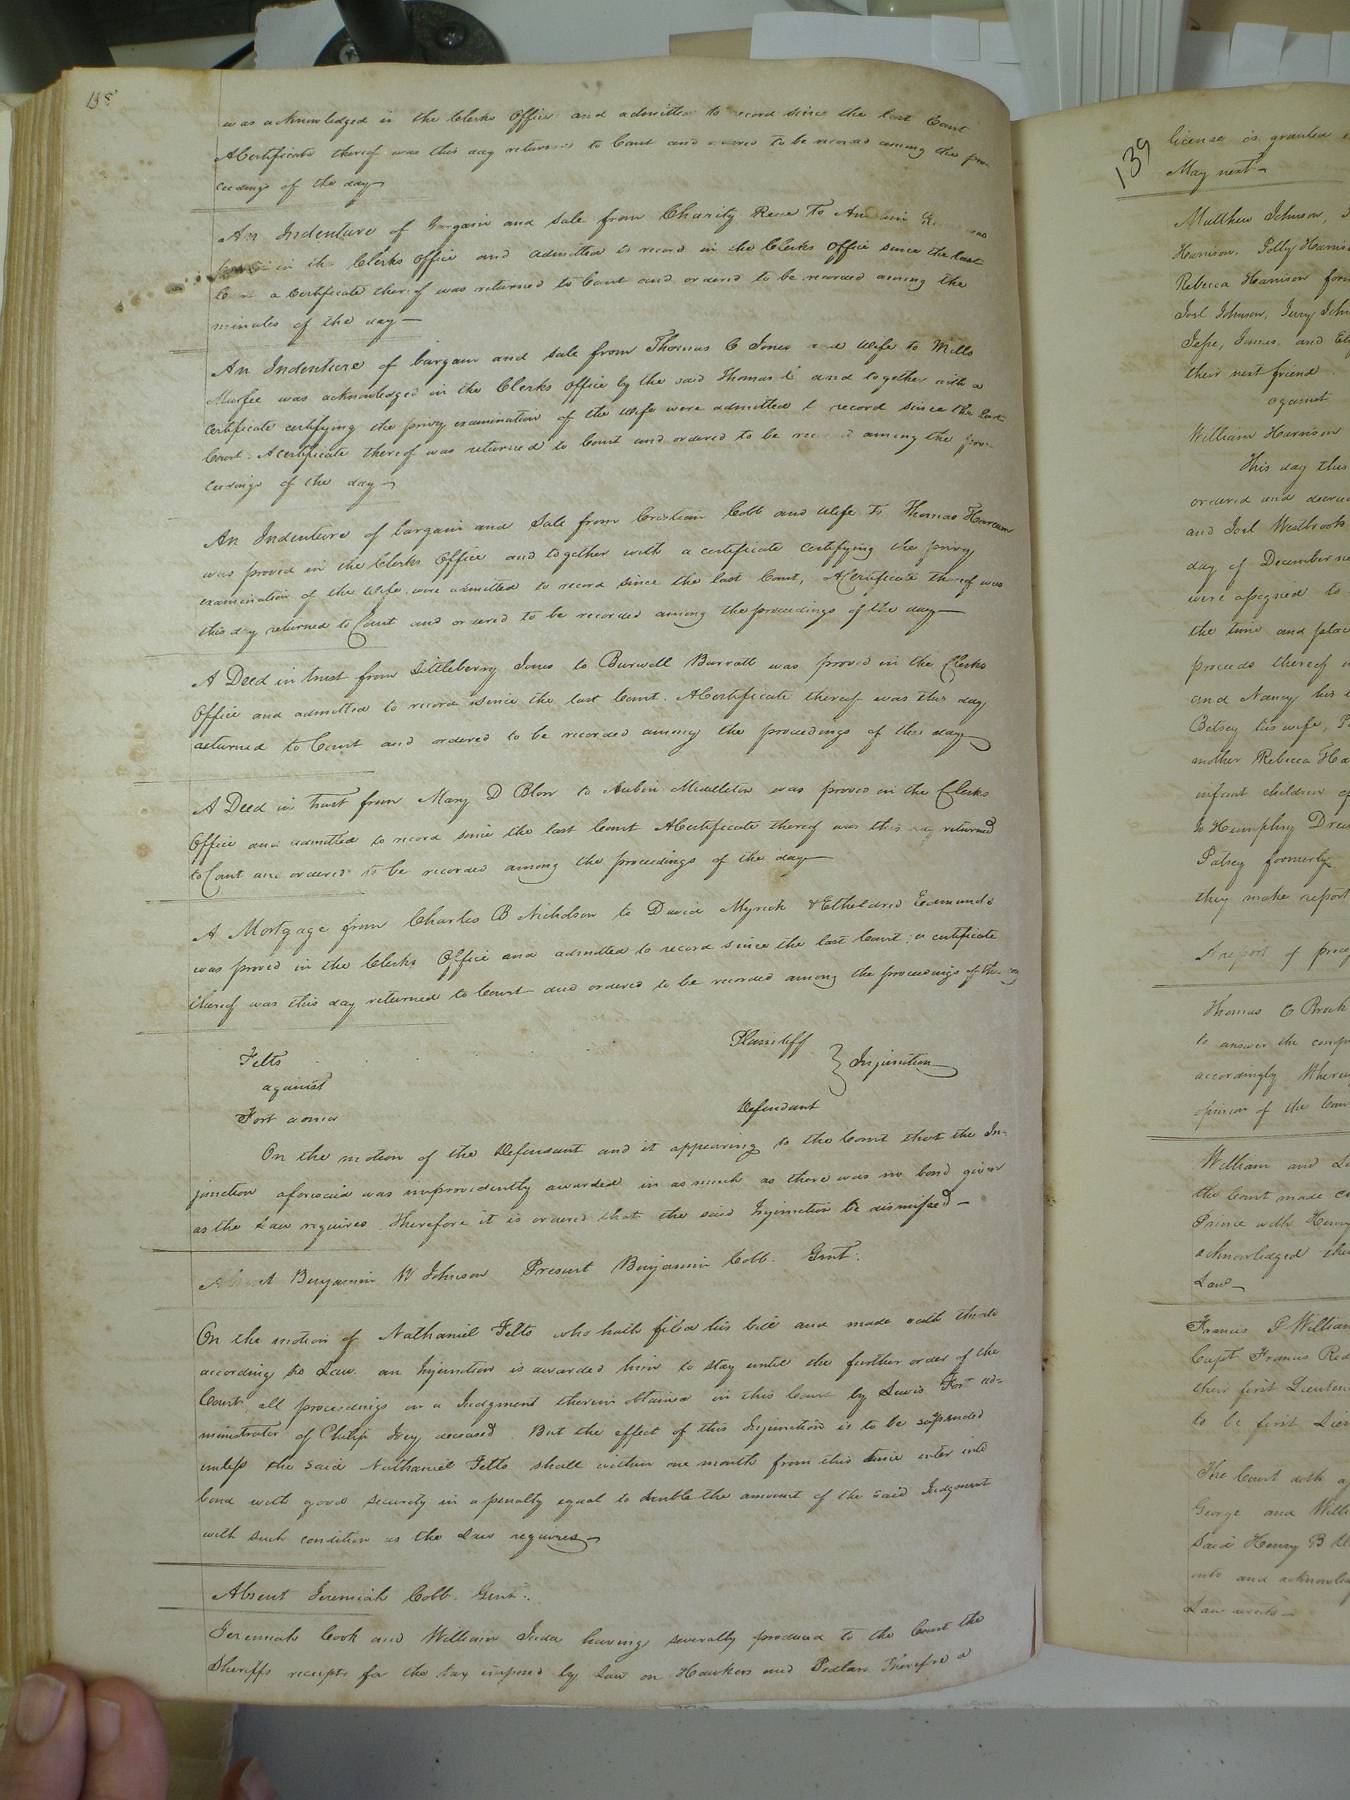 138
was acknowledged in the Clerks Office and admitted to record since the last Court
A Certificate thereof was this day returned to Court and ordered to be recorded among the pro-
ceedings of the day
An Indenture of bargain and sale from Charity Rese To
in the Clerks Office and admitted to record in the Clerks Office since the last
a Certificate thereof was returned to Court and ordered to be recorded among the
minutes of the day
An Indenture of bargain and sale from Thomas C Jones and Wife to Mills
Murfee was acknowledged in the Clerks Office by the said Thomas C and together with a
certificate certifying the privy examination of the Wife were admitted to record since the last
Court. A certificate thereof was returned to Court and ordered to be recorded among the pro-
ceedings of the day
An Indenture of bargain and Sale from Cristian Cobb and Wife To Thomas
was proved in the Clerks Office and together with a certificate certifying the privy
examination of the Wife were admitted to record since the last Court, A Certificate thereof was
this day returned to Court and ordered to be recorded among the proceedings of the day
A Deed in trust from Littleberry Jones to Burwell Barrott was proved in the Clerks
Office and admitted to record since the last Court. A Certificate thereof was this day
returned to Court and ordered to be recorded among the proceedings of this day
A Deed in trust from Mary D Blow to Aubin Middleton was proved in the Clerks
Office and admitted to record since the last Court A Certificate thereof was this day returned
to Court and ordered to be recorded among the proceedings of the day
A Mortgage from Charles B Nicholson to David Myrick & Etheldred Edmunds
was proved in the Clerks Office and admitted to record since the last Court; a certificate
thereof was this day returned to Court and ordered to be recorded among the proceedings of the day
Felts Plaintiff
against } Injunction
Fort admr Defendant
On the motion of the Defendant and it appearing to the Court that the In-
junction aforesaid was improvidently awarded in as much as there was no bond given
as the Law requires. Therefore it is ordered that the said Injunction be dismissed
Absent Benjamin W Johnson Present Benjamin Cobb. Gent.
On the motion of Nathaniel Felts who hath filed his bill and made oath thereto
according to Law. an Injunction is awarded him to stay until the further order of the
Court, all proceedings on a Judgment therein obtained in this Court by Lewis Fort ad-
ministrator of Philip Ivey deceased. But the effect of this Injunction is to be suspended
unless the said Nathaniel Felts shall within one month from this time enter into
bond with good security in a penalty equal to double the amount of the said Judgment
with such condition as the Law requires
Absent Jeremiah Cobb. Gent.
Jeremiah Cook and William Juda having severally produced to the Court the
Sheriffs receipts for the tax imposed by Law on Hawkers and Pedlars Therefore a
139
license is granted
May next
Matthew Johnson,
Harrison, Polly Harris
Rebecca Harrison for
Joel Johnson, Jerry John
Jesse, James, and El
their next friend
against
William Harrison
This day this
ordered and decreed
and Joel Westbrook
day of December ne
were assigned to
the time and place
proceeds thereof
and Nancy his
Betsey his wife,
mother Rebecca Ha
infant children of
to Humphry Drew
Patsey formerly
they make report
A report of
Thomas C
to answer the comp
accordingly Where
opinion of the Cou
William and
the Court made
Prince with Henry
acknowledged the
Law
Francis G William
Capt Francis Rid
their first Lieuten
to be first Lieu
The Court doth
George and Willi
Said Henry B
into and acknowled
Law